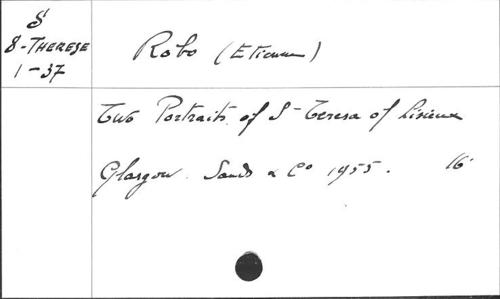 S
8-THERESE
1-37
Robo (Etienne)
Two Portraits of St Teresa of Lisieux
Glasgow. Sands & Co 1955. 16